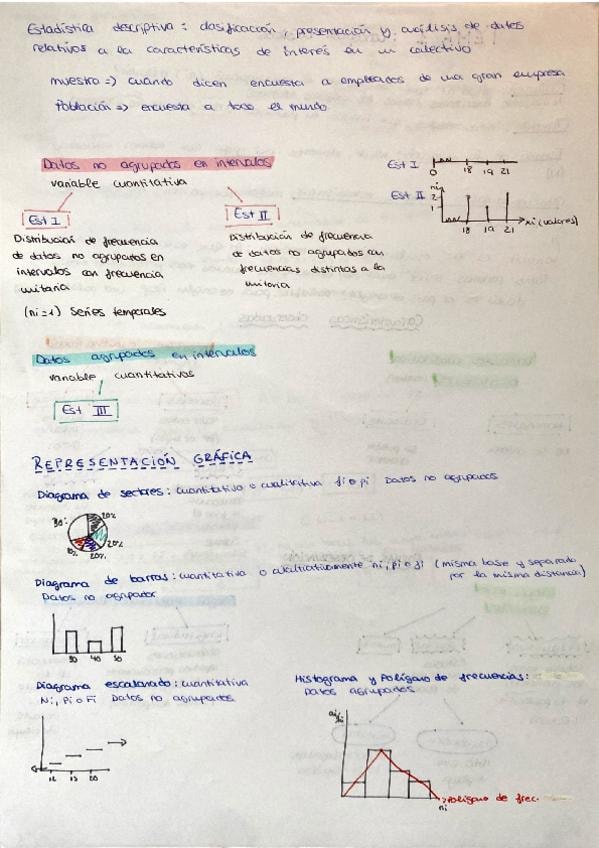 Estadística descriptiva: clasificación, presentación y análisis de datos
relativos a la características de interés en un colectivo
muestra => cuando dicen encuesta a empleados de una gran empresa
Población => encuesta a todo el mundo
Datos no agrupados en intervalos
variable cuantitativa
Est I
Est II
Distribución de frecuencia
de datos no agrupados en
intervalos con frecuencia
unitaria
(ni=1) Series temporales
Distribución de frecuencia
de datos no agrupados con
frecuencias distintas a la
unitaria
Est I
0 18 19 21
Est II
ni
2
1
18 19 21
xi (valores)
Datos agrupados en intervalos
variable cuantitativas
Est III
REPRESENTACIÓN GRÁFICA
Diagrama de sectores: cuantitativa o cualitativa fi o pi Datos no agrupados
20%
20%
20%
10%
Diagrama de barras: cuantitativa o cualitativamente ni, pi o fi (misma base y separado
por la misma distancia)
Datos no agrupador
30 40 50
Diagrama escalonado: cuantitativa
Ni, Pi o Fi Datos no agrupados
Histograma y Polígono de frecuencias:
Datos agrupados
Polígono de frec.
ni